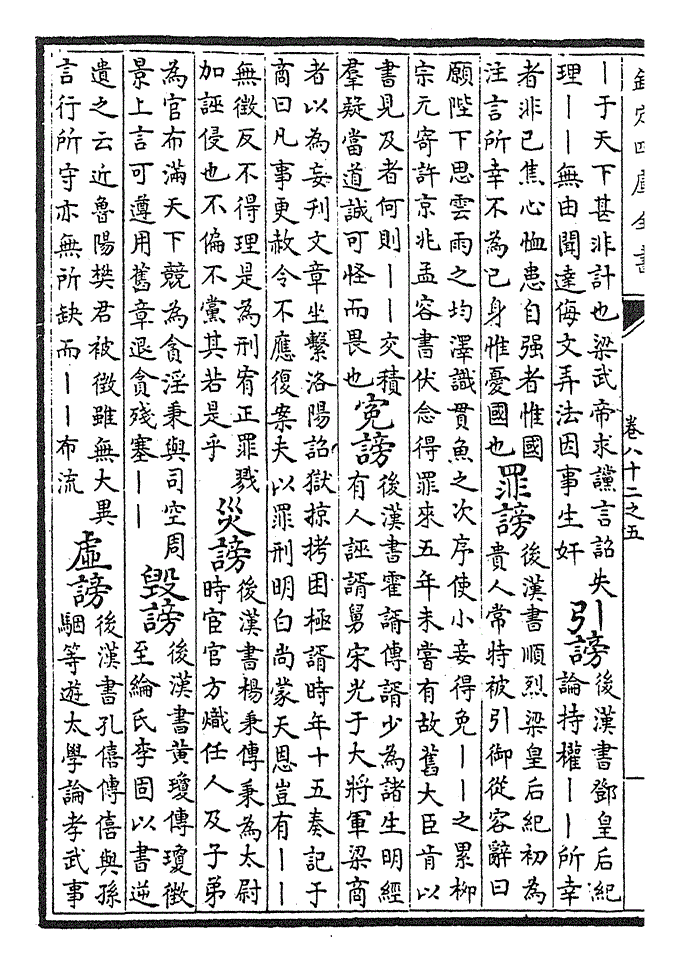 欽定四庫全書
卷八十二之五
一
｜于天下甚非計也梁武帝求讜言詔失
理｜｜無由聞達侮文弄法因事生奸
引謗
後漢書鄧皇后紀
論持權｜｜所幸
者非已焦心恤患自强者惟國
注言所幸不為已身惟憂國也
罪謗
後漢書順烈梁皇后紀初為
貴人常特被引御從容辭曰
願陛下思雲雨之均澤識貫魚之次序使小妾得免｜｜之累柳
宗元寄許京兆孟容書伏念得罪來五年未嘗有故舊大臣肯以
書見及者何則｜｜交積
羣疑當道誠可怪而畏也
寃謗
後漢書霍諝傳諝少為諸生明經
有人誣諝舅宋光于大將軍梁商
者以為妄刊文章坐繫洛陽詔獄掠拷困極諝時年十五奏記于
商曰凡事更赦令不應復案夫以罪刑明白尚蒙天恩豈有｜｜
無徵反不得理是為刑宥正罪戮
加誣侵也不偏不黨其若是乎
災謗
後漢書楊秉傳秉為太尉
時宦官方熾任人及子弟
為官布滿天下競為貪淫秉與司空周
景上言可遵用舊章退貪殘塞｜｜
毀謗
後漢書黄瓊傳瓊徵
至綸氏李固以書逆
遺之云近魯陽樊君被徵雖無大異
言行所守亦無所缺而｜｜布流
虛謗
後漢書孔僖傳僖與孫
駰等遊太學論孝武事